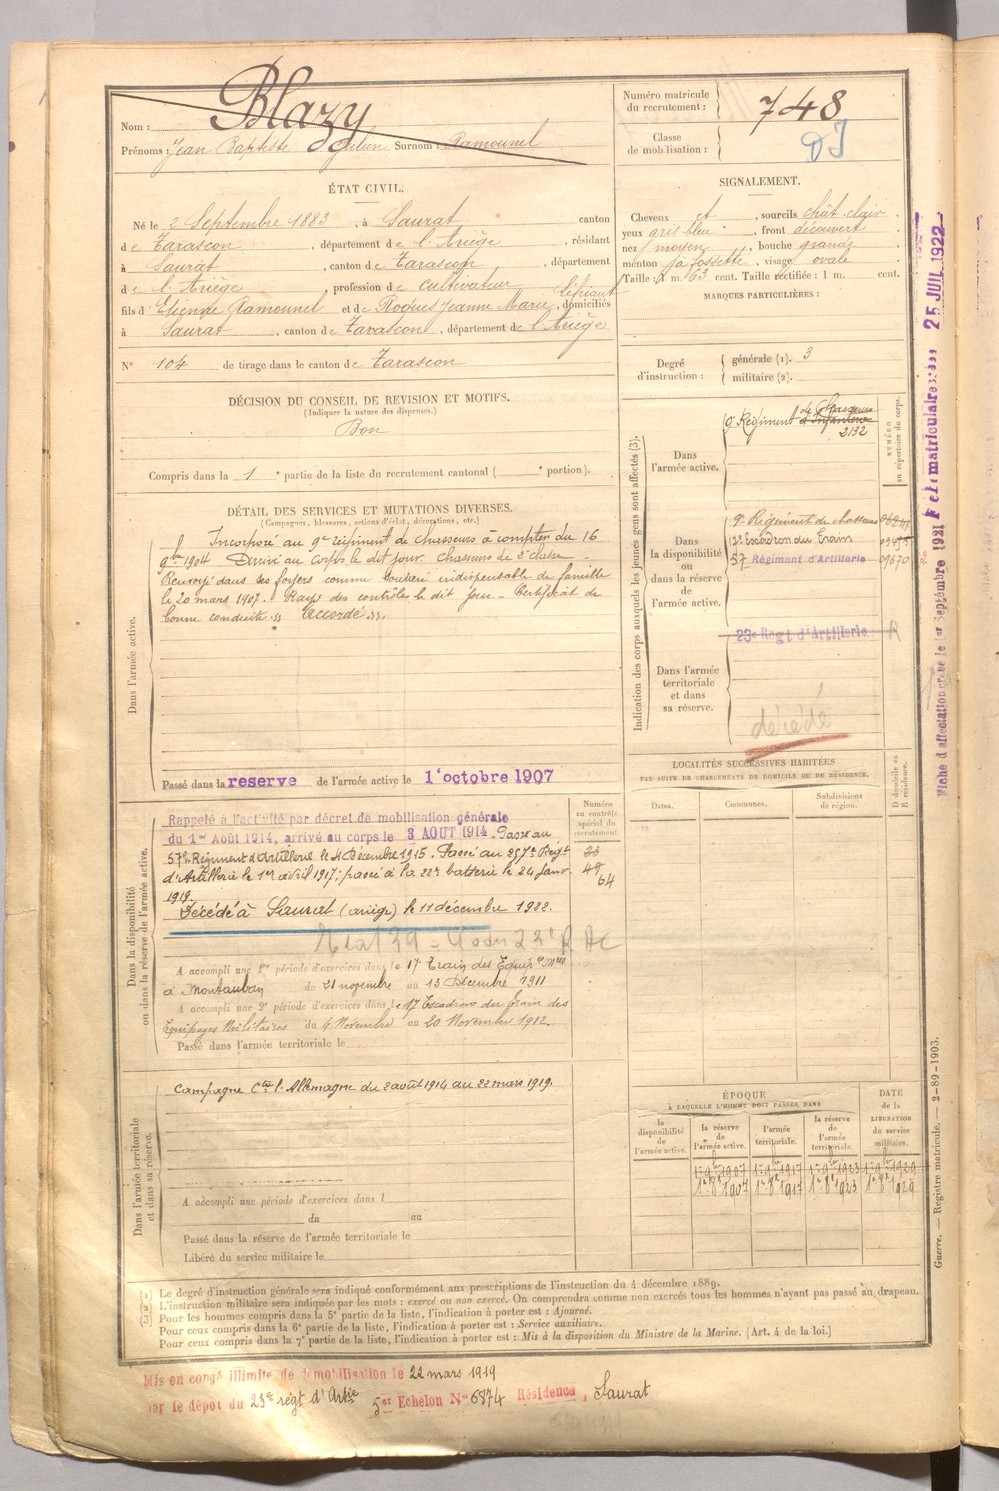 Nom : Blazy
Prénoms : Jean Baptiste Julien Surnom : Ramounel
Numéro matricule du recrutement : 748
Classe de mobilisation :
ÉTAT CIVIL.
Né le 2 Septembre 1883, à Saurat canton
de Tarascon, département de l'Ariège, résidant
à Saurat, canton de Tarascon, département
de l'Ariège, profession de Cultivateur
fils d'Etienne Ramounel et de Roques Jeanne Marie, domiciliés
à Saurat, canton de Tarascon, département de l'Ariège
N° 104 de tirage dans le canton de Tarascon
SIGNALEMENT.
Cheveux et, sourcils chât. clair,
yeux gris bleu, front découvert
nez moyen, bouche grande
menton à fossette, visage ovale
Taille : 1 m. 63 cent. Taille rectifiée : 1 m. cent.
MARQUES PARTICULIÈRES :
Degré d'instruction : générale (1). 3
militaire (2).
DÉCISION DU CONSEIL DE REVISION ET MOTIFS.
(Indiquer la nature des dispenses.)
Bon
Compris dans la 1e partie de la liste du recrutement cantonal ( e portion).
DÉTAIL DES SERVICES ET MUTATIONS DIVERSES.
(Campagnes, blessures, actions d'éclat, décorations, etc.)
Dans l'armée active.
Incorporé au 9e régiment de chasseurs à compter du 16
9bre 1904 Arrivé au corps le dit jour. Chasseur de 2e classe
Renvoyé dans ses foyers comme soutien indispensable de famille
le 20 mars 1907. Rayé des contrôles le dit jour - Certificat de
bonne conduite "Accordé".
Passé dans la reserve de l'armée active le 1er octobre 1907
Indication des corps auxquels les jeunes gens sont affectés (3).
NUMÉRO au répertoire du corps.
Dans l'armée active.
9e Régiment de Chasseurs
d'Infanterie
2132
Dans la disponibilité ou dans la réserve de l'armée active.
9e Régiment de chasseurs
17e Escadron du Train
57 Régiment d'Artillerie 09670
23e Regt d'Artillerie R
Dans l'armée territoriale et dans sa réserve.
décédé
LOCALITÉS SUCCESSIVES HABITÉES
PAR SUITE DE CHANGEMENTS DE DOMICILE OU DE RÉSIDENCE.
Dates.
Communes.
Subdivisions de région.
D domicile ou R résidence.
Dans la disponibilité ou dans la réserve de l'armée active.
Numéro au contrôle spécial du recrutement.
Rappelé à l'activité par décret de mobilisation générale
du 1er Août 1914, arrivé au corps le 3 AOUT 1914. Passé au
57e Régiment d'Artillerie le 4 Décembre 1915. Passé au 257e Régt
d'Artillerie le 1er avril 1917; passé à la 22e batterie le 24 janv.
1919.
23
49
64
Décédé à Saurat (ariège) le 11 décembre 1922.
A accompli une 1re période d'exercices dans le 17e Train des Equip. Mres
à Montauban du 21 novembre au 13 Décembre 1911
A accompli une 2e période d'exercices dans le 17 Escadron du Train des
Equipages Militaires du 4 Novembre au 20 Novembre 1912.
Passé dans l'armée territoriale le
Dans l'armée territoriale et dans sa réserve.
Campagne Ctre l'Allemagne du 2 août 1914 au 22 mars 1919.
A accompli une période d'exercices dans l
du au
Passé dans la réserve de l'armée territoriale le
Libéré du service militaire le
ÉPOQUE
À LAQUELLE L'HOMME DOIT PASSER DANS
la disponibilité de l'armée active.
la réserve de l'armée active.
l'armée territoriale.
la réserve de l'armée territoriale.
DATE de la LIBÉRATION du service militaire.
1er 9bre 1907 1er 9bre 1917 1er 9bre 1923 1er 9bre 1929
1er 8bre 1907 1er 8bre 1917 1er 8bre 1923 1er 8bre 1929
(1) Le degré d'instruction générale sera indiqué conformément aux prescriptions de l'instruction du 4 décembre 1889.
(2) L'instruction militaire sera indiquée par les mots : exercé ou non exercé. On comprendra comme non exercés tous les hommes n'ayant pas passé au drapeau.
(3) Pour les hommes compris dans la 5e partie de la liste, l'indication à porter est : Ajourné.
Pour ceux compris dans la 6e partie de la liste, l'indication à porter est : Service auxiliaire.
Pour ceux compris dans la 7e partie de la liste, l'indication à porter est : Mis à la disposition du Ministre de la Marine. (Art. 4 de la loi.)
Mis en congé illimité de démobilisation le 22 mars 1919
par le dépôt du 23e régt d'Artie 5er Echelon N° 6874 Résidence, Saurat
Guerre. — Registre matricule. — 2-89-1903.
Fiche d'affectation créée le 1er Septembre 1921
25 JUIL 1922